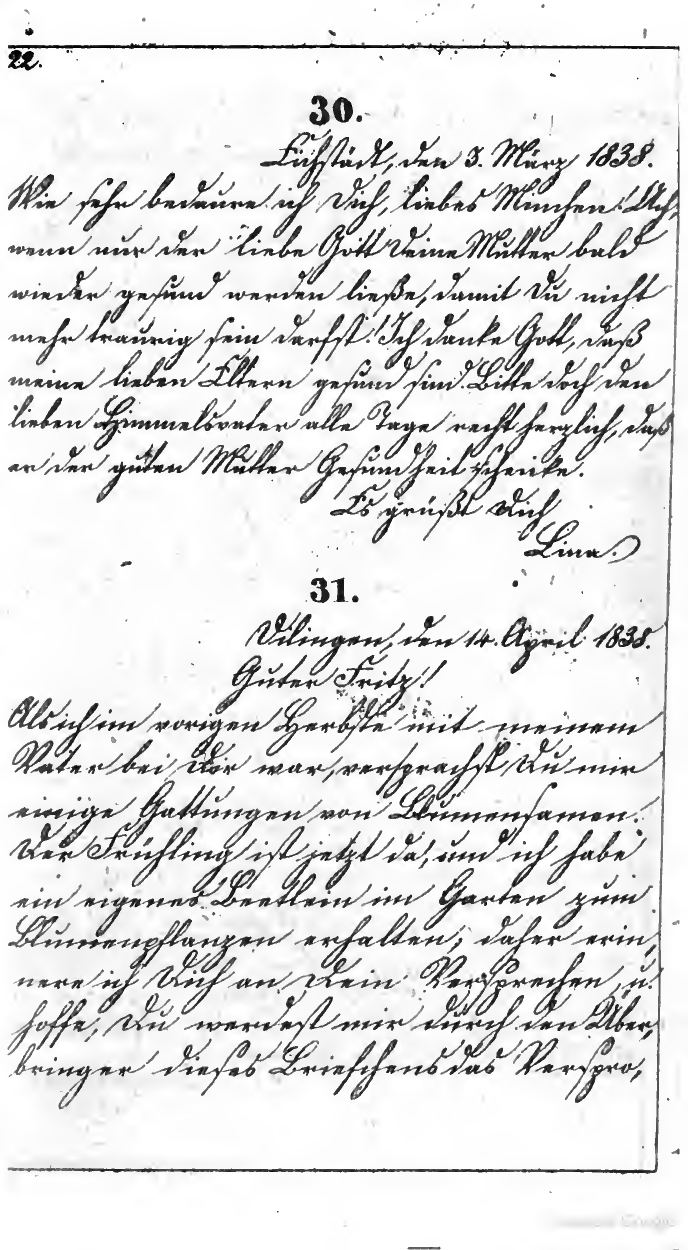 22.
30.
Eichstädt, den 3. März 1838.
Wie sehr bedaure ich Dich, liebes Minchen! Ach,
wenn nur der liebe Gott Deine Mutter bald
wieder gesund werden ließe, damit Du nicht
mehr traurig sein darfst! Ich danke Gott, daß
meine lieben Eltern gesund sind. Bitte doch den
lieben Himmelsvater alle Tage recht herzlich, daß
er der guten Mutter Gesundheit schenke.
Es grüßt Dich
Lina.
31.
Dilingen, den 14. April 1838.
Guter Fritz!
Als ich im vorigen Herbste mit meinem
Vater bei Dir war, versprachst Du mir
einige Gattungen von Blumensamen.
Der Frühling ist jetzt da, und ich habe
ein eigenes Beetlein im Garten zum
Blumenpflanzen erhalten; daher erin,
nere ich Dich an Dein Versprechen u.
hoffe, Du werdest mir durch den Über,
bringer dieses Briefchens das Verspro,